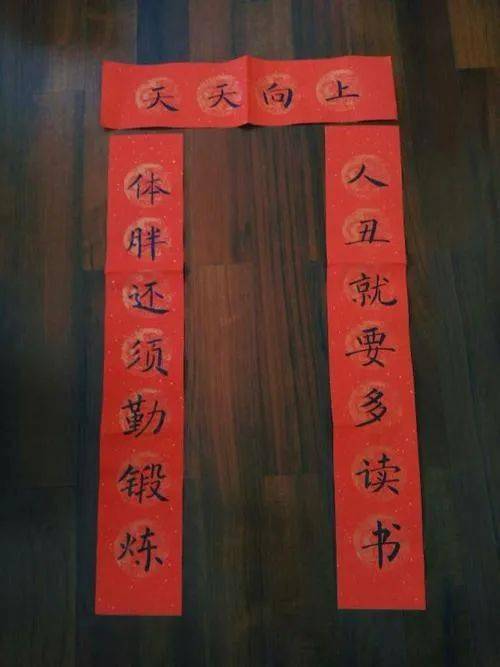 天天向上
人丑就要多读书
体胖还须勤锻炼